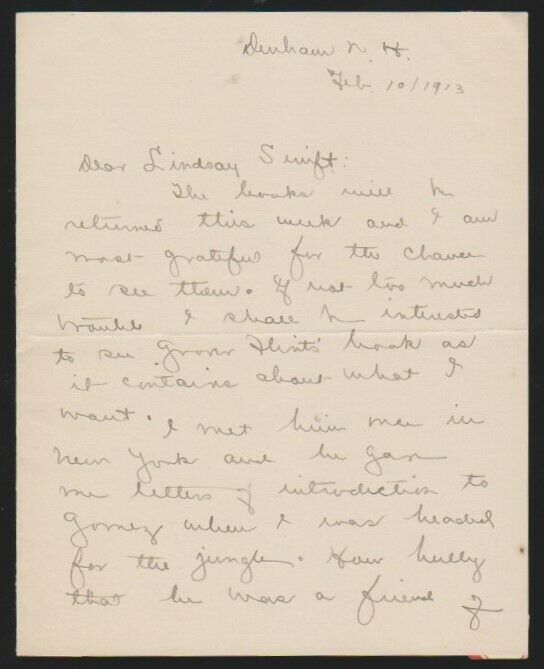 Denham N. H.
Feb. 10/1913
Dear Lindsay Swift:
The books will be
returned this week and I am
most grateful for the chance
to see them. If not too much
trouble I shall be interested
to see Grover Flint's book as
it contains about what I
want. I met him once in
New York and he gave
me letters of introduction to
Gomez when I was headed
for the jungle. How bully
that he was a friend of